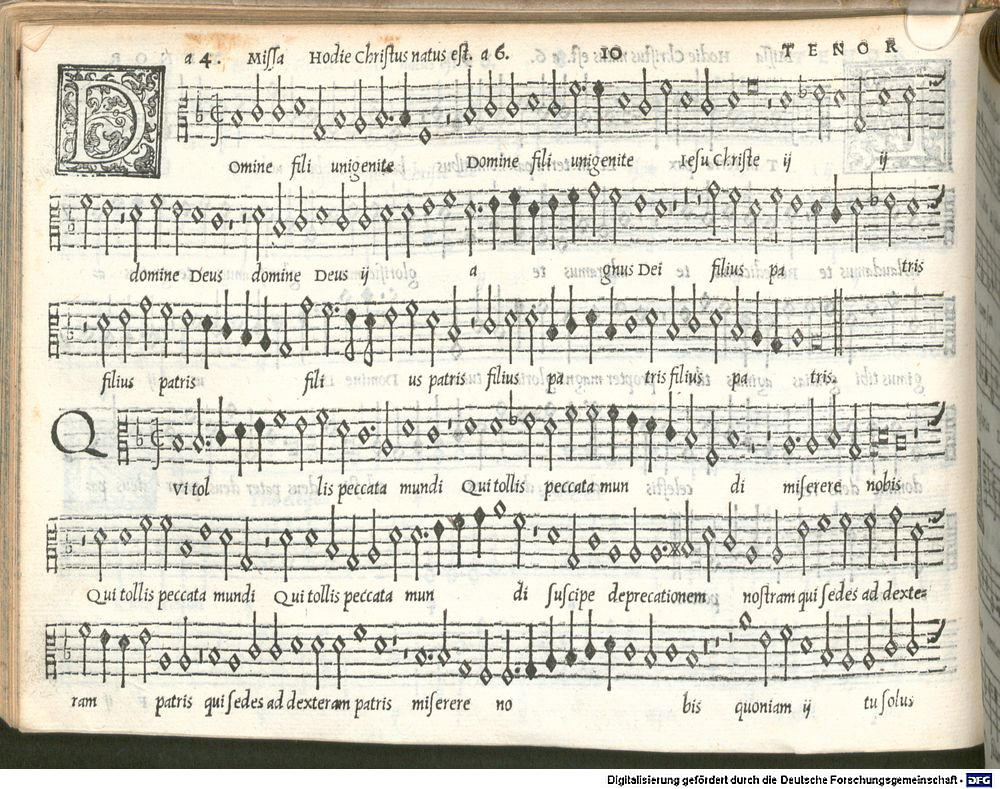 a 4. Missa Hodie Christus natus est. a 6. 10 TENOR
DOmine fili unigenite Domine fili unigenite Iesu Christe ij ij
domine Deus domine Deus ij a gnus Dei filius pa tris
filius patris fili us patris filius pa tris filius pa tris.
QVi tol lis peccata mundi Qui tollis peccata mun di miserere nobis
Qui tollis peccata mundi Qui tollis peccata mun di suscipe deprecationem nostram qui sedes ad dexte=
ram patris qui sedes ad dexteram patris miserere no bis quoniam ij tu solus
Digitalisierung gefördert durch die Deutsche Forschungsgemeinschaft - DFG